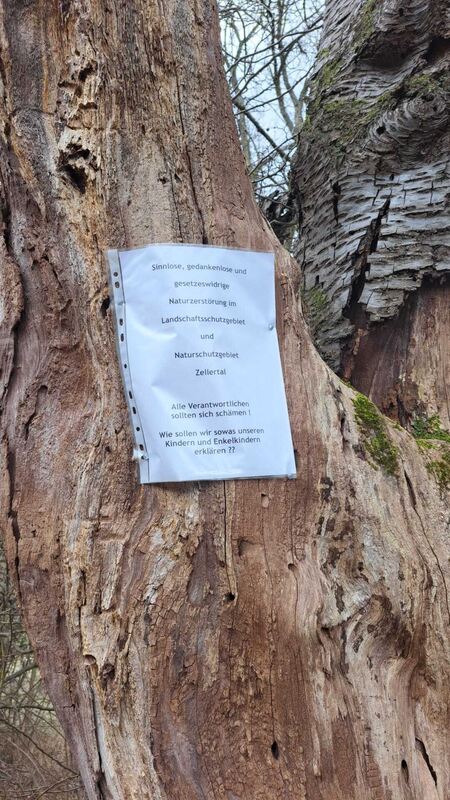 Sinnlose, gedankenlose und
gesetzeswidrige
Naturzerstörung im
Landschaftsschutzgebiet
und
Naturschutzgebiet
Zellertal
Alle Verantwortlichen
sollten sich schämen !
Wie sollen wir sowas unseren
Kindern und Enkelkindern
erklären ??